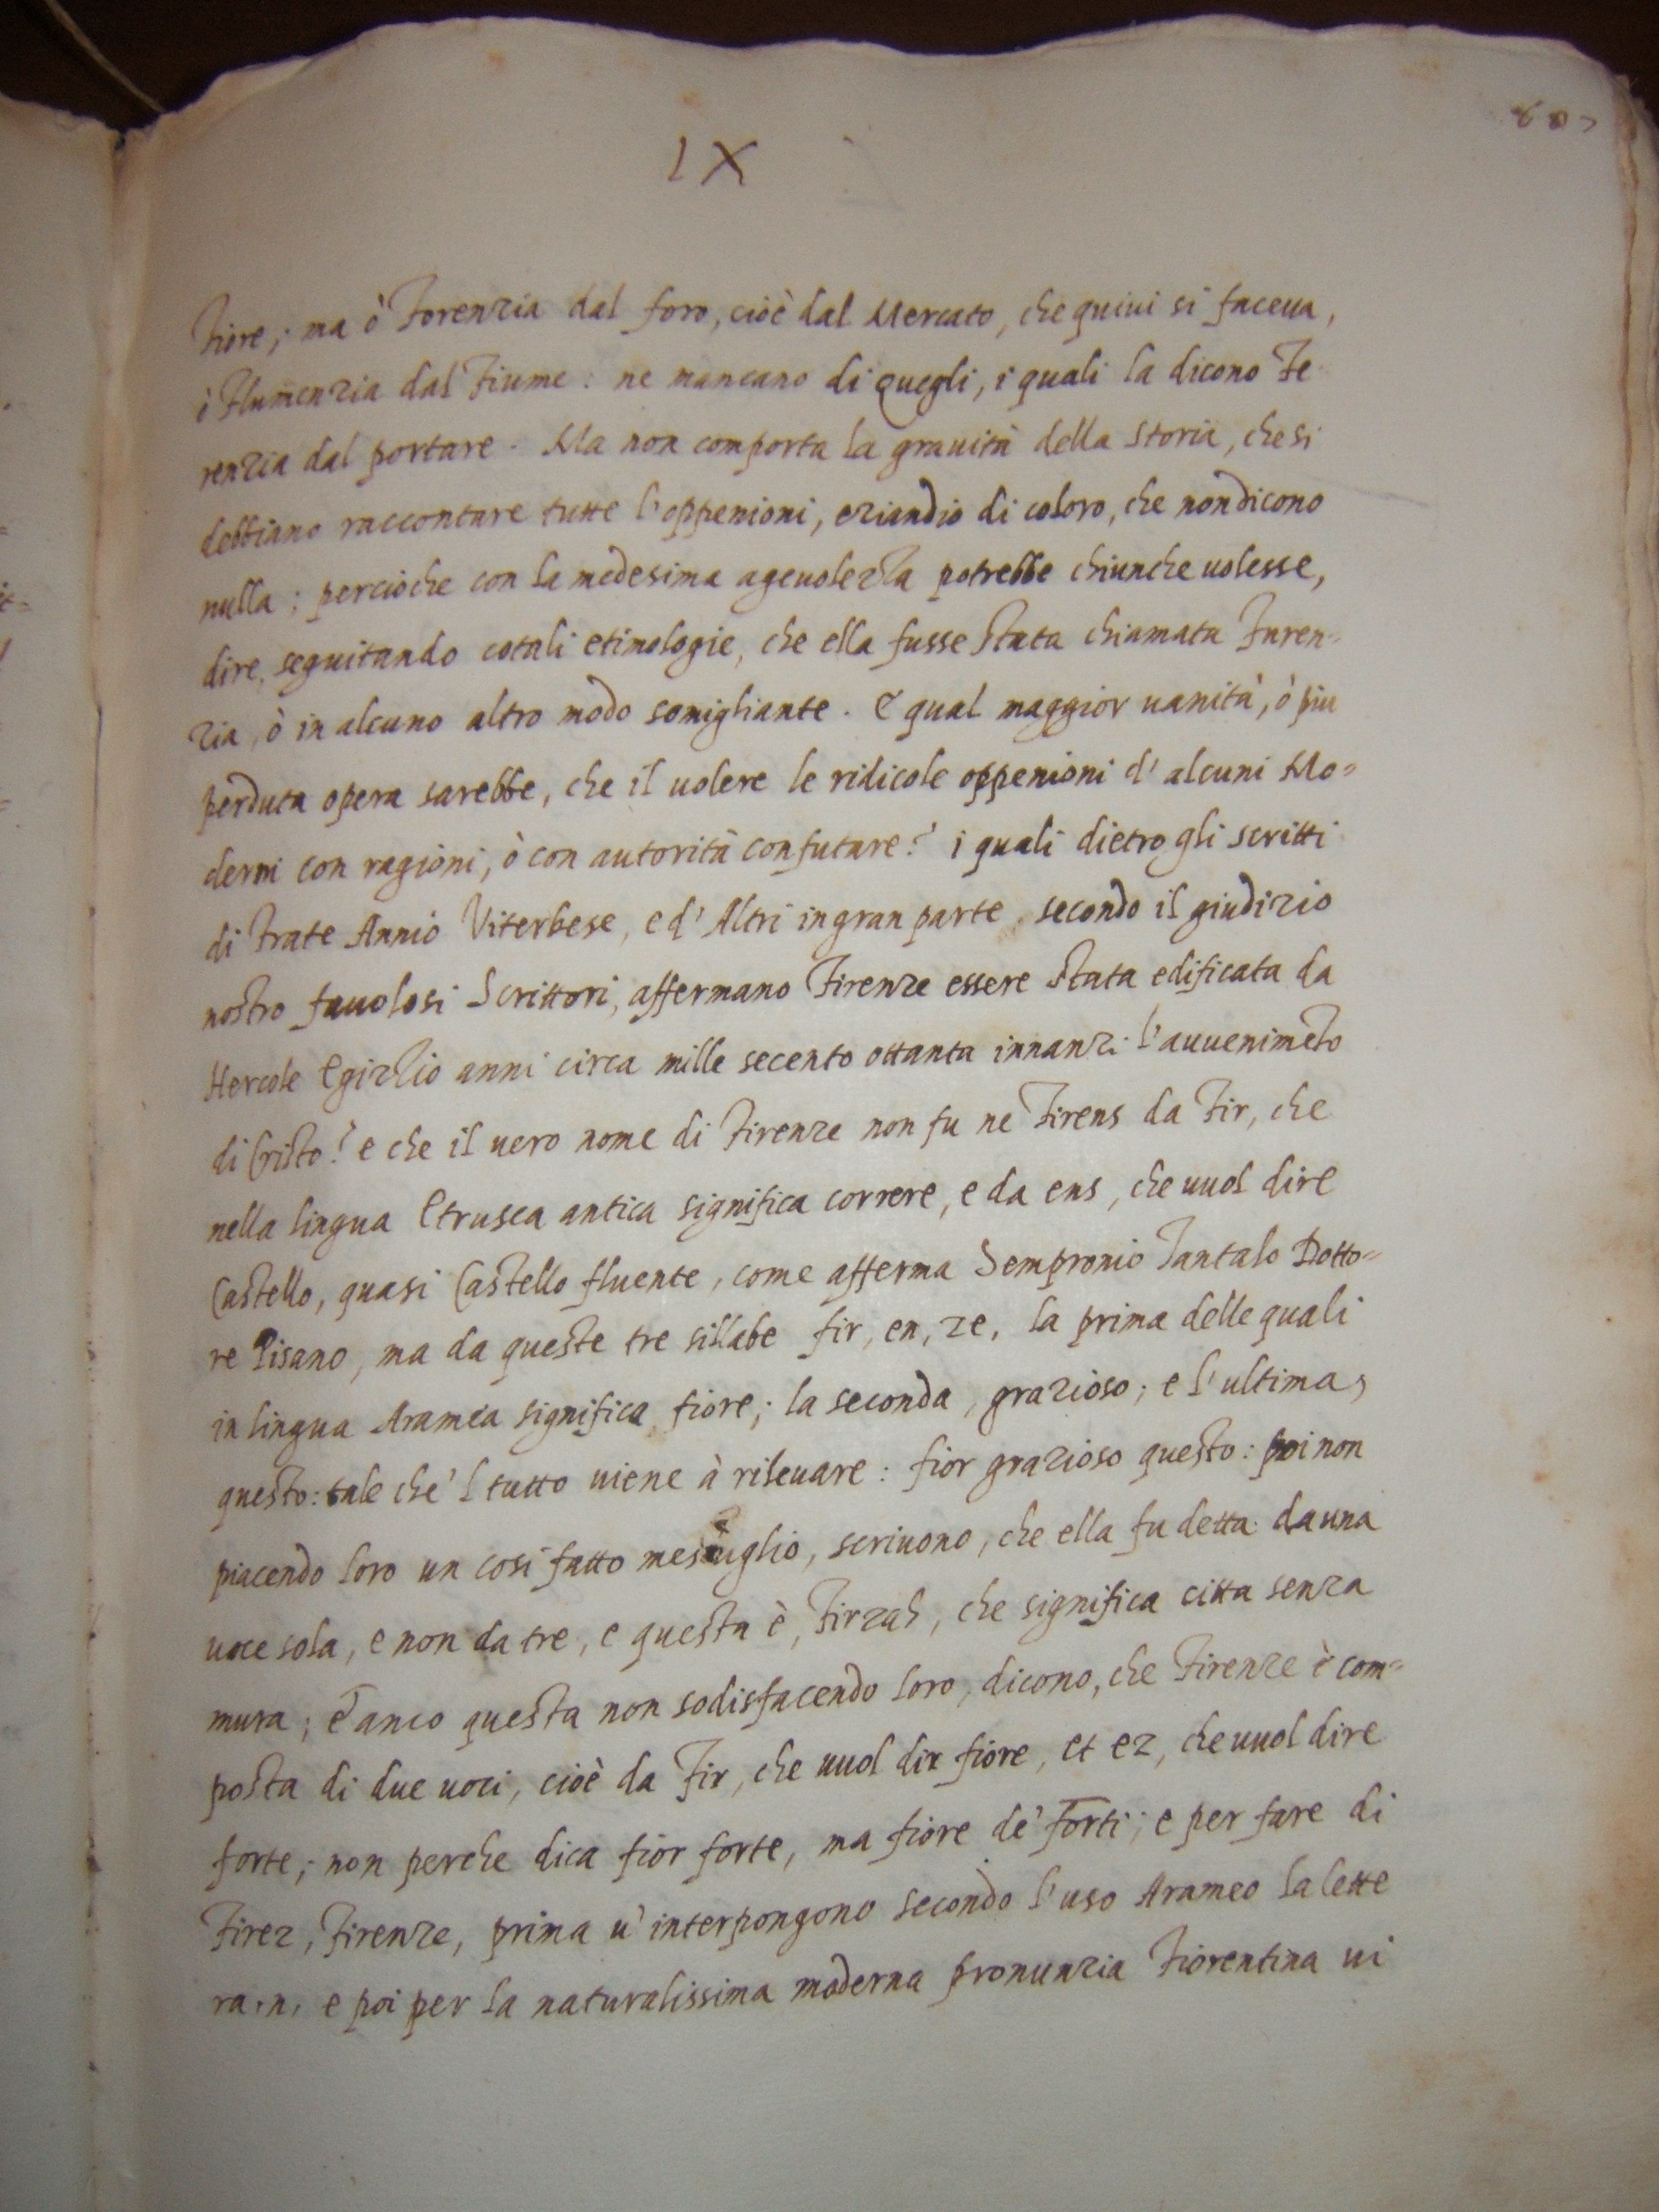 IX
607
Fiore; ma ò Forenzia dal foro, cioè dal Mercato, che quiui si faceua,
ò Flumenzia dal Fiume: ne mancano di quegli, i quali la dicono Fe-
renzia dal portare. Ma non comporta la grauità della storia, che si
debbiano raccontare tutte l'oppenioni, eziandio di coloro, che non dicono
nulla; percioche con la medesima ageuolezza potrebbe chiunche uolesse,
dire, seguitando cotali etimologie, che ella fusse stata chiamata Furen-
zia, ò in alcuno altro modo somigliante. E qual maggior uanità, ò piu
perduta opera sarebbe, che il uolere le ridicole oppenioni d'alcuni Mo=
derni con ragioni, ò con autorità confutare? i quali dietro gli scritti
di Frate Annio Viterbese, e d'Altri in gran parte, secondo il giudizio
nostro fauolosi Scrittori, affermano Firenze essere stata edificata da
Hercole Egizzio anni circa mille secento ottanta innanzi l'auuenimẽto
di Cristo? e che il uero nome di Firenze non fu ne Firens da Fir, che
nella lingua Etrusca antica significa correre, e da ens, che uuol dire
Castello, quasi Castello fluente, come afferma Sempronio Tantalo Dotto=
re Pisano, ma da queste tre sillabe fir, en, ze, la prima delle quali
in lingua Aramea significa fiore; la seconda, grazioso; e l'ultima,
questo: tale che'l tutto uiene à rileuare: fior grazioso questo: poi non
piacendo loro un cosi fatto mescuglio, scriuono, che ella fu detta da una
uoce sola, e non da tre, e questa è, Firzah, che significa citta senza
mura; e anco questa non sodisfacendo loro, dicono, che Firenze è com=
posta di due uoci, cioè da Fir, che uuol dir fiore, et ez, che uuol dire
forte; non perche dica fior forte, ma fiore de' forti; e per fare di
Firez, Firenze, prima u'interpongono secondo l'uso Arameo la lette
ra .n. e poi per la naturalissima moderna pronunzia Fiorentina ui